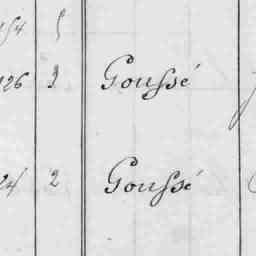 154 5
126 3 Goussé
24 2 Goussé